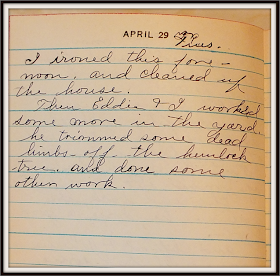 APRIL 29 Tues.
I ironed this fore-
noon. and cleaned up
the house.
Then Eddie & I worked
some more in the yard
he trimmed some dead
limbs off the hemlock
tree. and done some
other work.